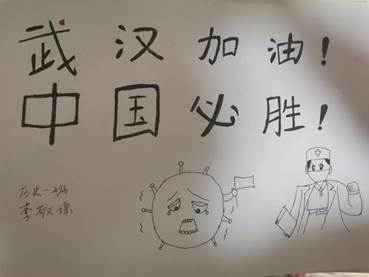 武汉加油！
中国必胜！
历史一班
李